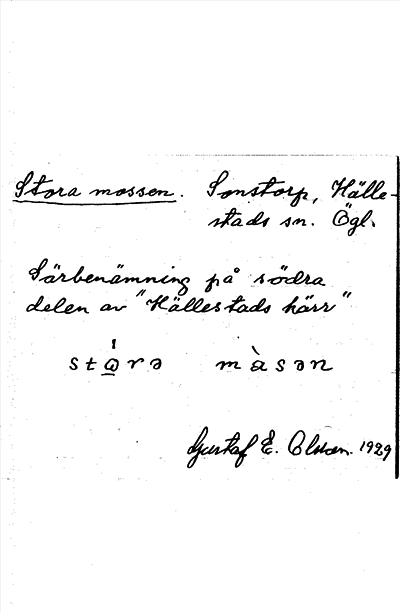 Stora mossen. Sonstorp, Hälle-
stads sn. Ögl.
Särbenämning på södra
delen av "Hällestads kärr"
stɷ̀rə màsən
Gustaf E. Olsson. 1929